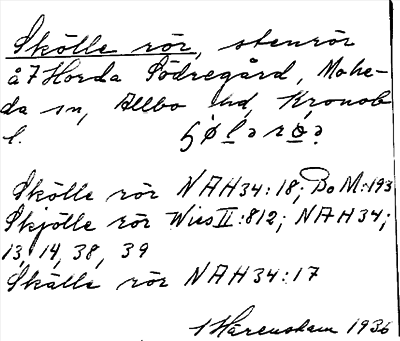 Skölle rör, stenrör
å 7 Horda Södregård, Mohe-
da sn, Allbo hd, Kronob
l. ʃø̀lə rö̀ə
Skölle rör NAH34:18; DoM:193
Skjölle rör Wies II:812; NAH34;
13, 14, 38, 39
Skälle rör NAH34:17
1936